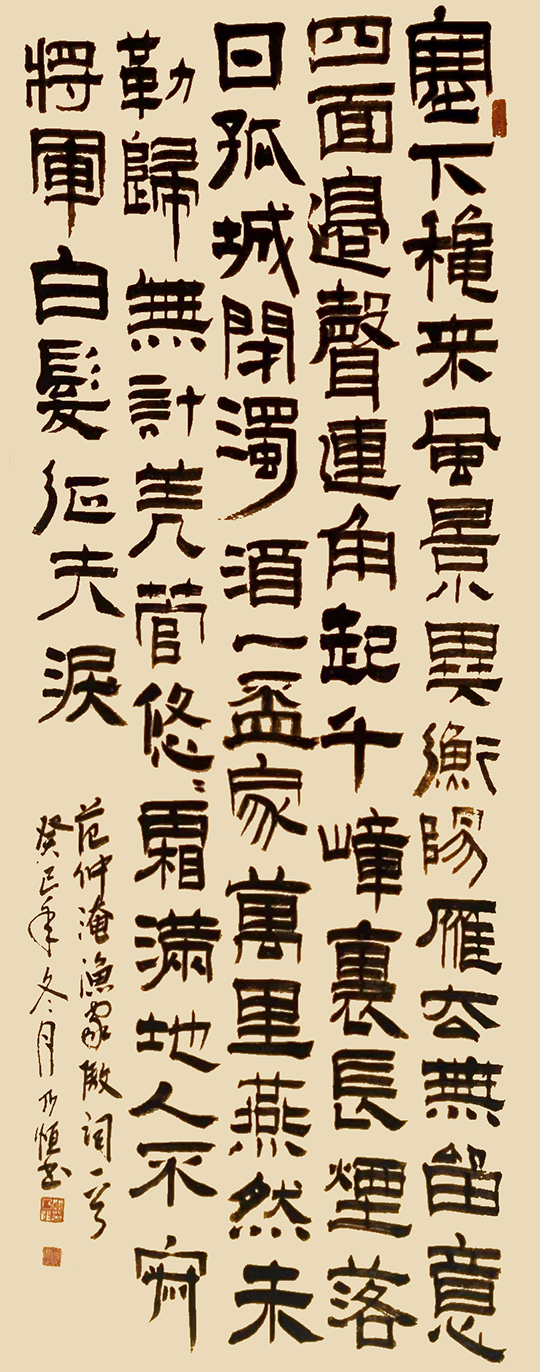 塞下穐来風景異衡陽雁去無留意
四面邊聲連角起千嶂裏長煙落
日孤城閉濁酒一盃家萬里燕然未
勒歸無計羌管悠〻霜滿地人不寐
將軍白髮征夫淚
范仲淹漁家傲詞一首
癸巳年冬月乃恒書